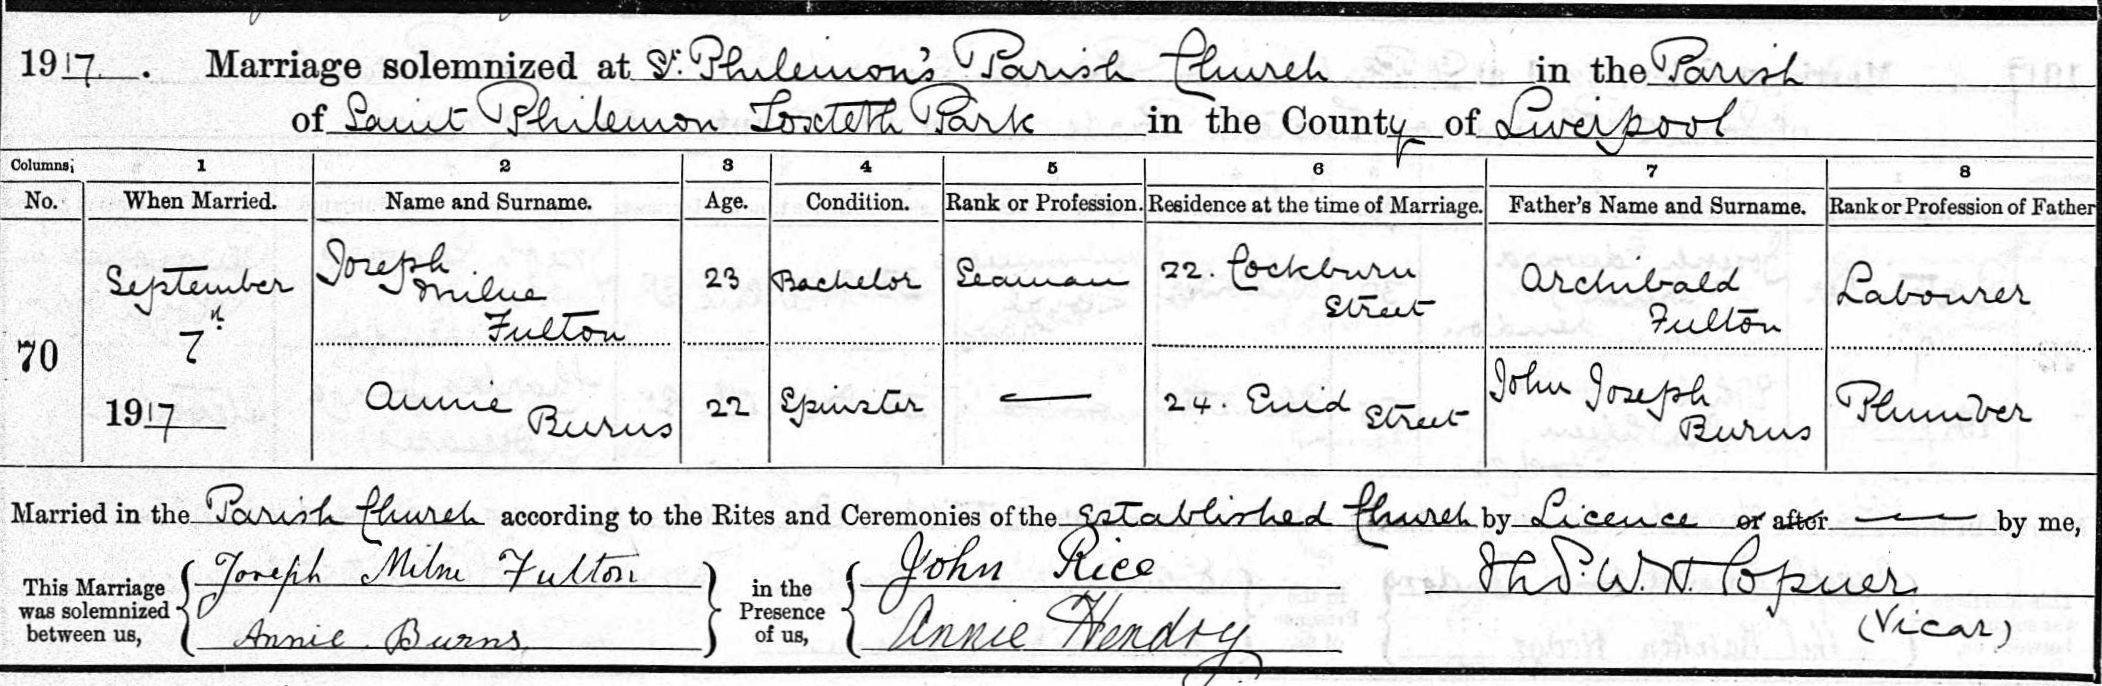 1917. Marriage solemnized at St. Philemon's Parish Church in the Parish
of Saint Philemon Toxteth Park in the County of Liverpool
Columns; 1 2 3 4 5 6 7 8
No. When Married. Name and Surname. Age. Condition. Rank or Profession. Residence at the time of Marriage. Father's Name and Surname. Rank or Profession of Father
70
September
7th
1917
Joseph
Milne
Fulton
23
Bachelor
Seaman
22. Cockburn
Street
Archibald
Fulton
Labourer
Annie
Burns
22
Spinster
—
24. Enid
Street
John Joseph
Burns
Plumber
Married in the Parish Church according to the Rites and Ceremonies of the Established Church by Licence or after — by me,
This Marriage
was solemnized
between us,
Joseph Milne Fulton
Annie Burns
in the
Presence
of us,
John Rice
Annie Hendry
W. H.
(Vicar)